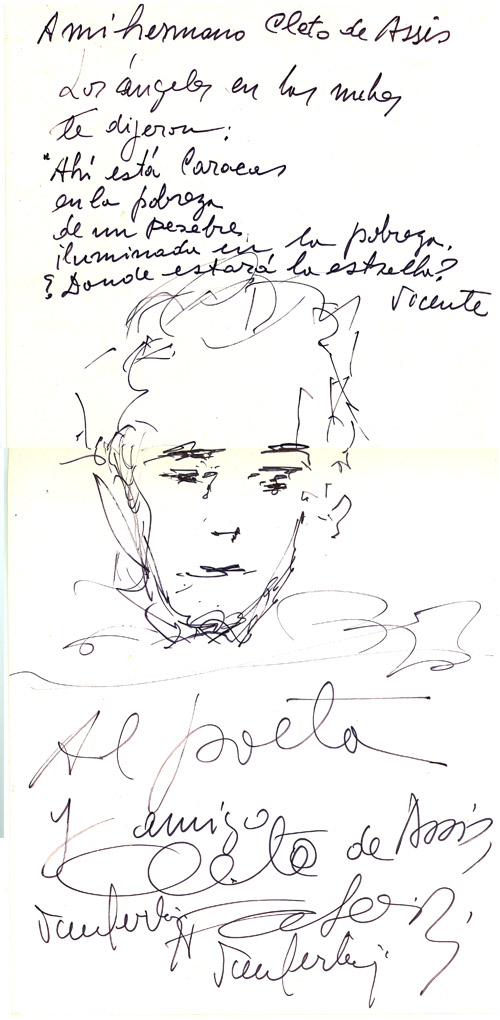 A mi hermano Cleto de Assis
Los ángeles en las nubes
te dijeron:
"Ahí está Caracas
en la pobreza
de un pesebre,
iluminada en la pobreza.
¿Donde estará la estrella?
Vicente
Al poeta
y amigo
Cleto de Assis,